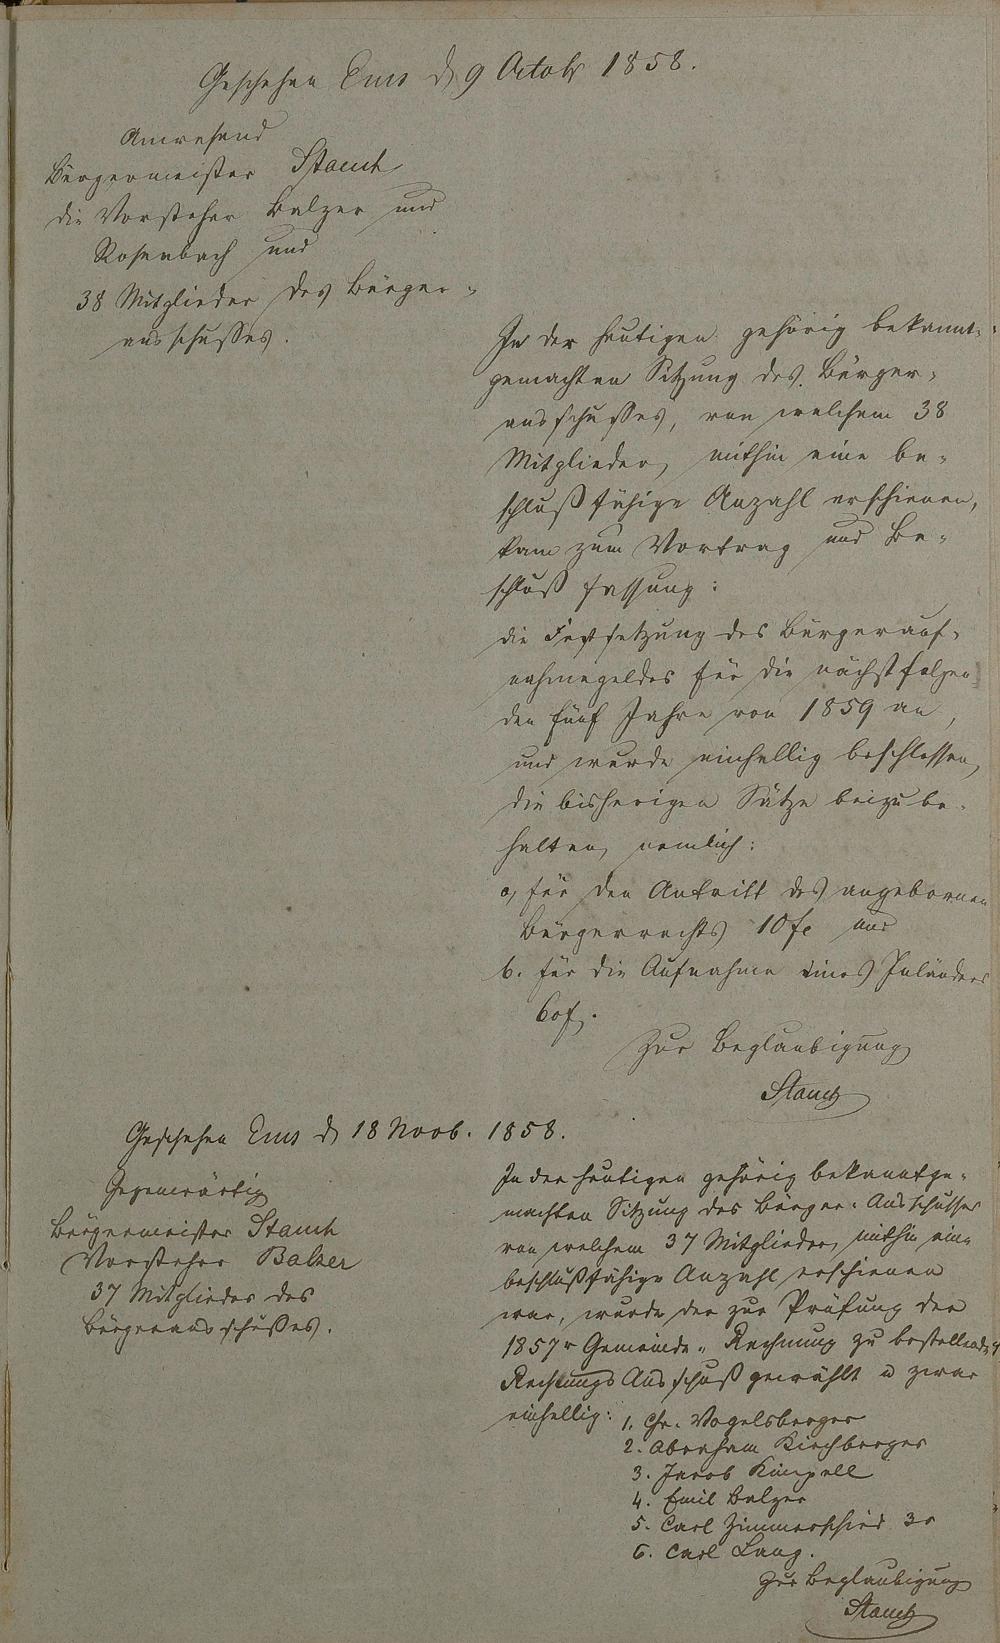 Geschehen Ems d 9 Octobr 1858.
Anwesend
Bürgermeister Stauch
die Vorsteher Balzer und
Rosenbach und
38 Mitglieder des Bürger-
ausschusses.
In der heutigen gehörig bekannt-
gemachten Sitzung des Bürger-
ausschusses, von welchem 38
Mitglieder, mithin eine be-
schlußfähige Anzahl erschienen,
kam zum Vortrag und Be-
schluß fassung:
die Festsetzung des Bürgerauf-
nahmegeldes für die nächstfolgen
den fünf Jahre von 1859 an,
und wurde einhellig beschlossen,
die bisherigen Sätze beizube-
halten, nemlich:
a, für den Antritt des angebornen
Bürgerrechts 10 f und
b. für die Aufnahme eines Inländers
60 f.
Zur Beglaubigung
Stauch
Geschehen Ems d 18 Novb. 1858.
Gegenwärtig
Bürgermeister Stauch
Vorsteher Balzer
37 Mitglieder des
Bürgerausschußes.
In der heutigen gehörig bekanntge-
machten Sitzung des Bürger-Ausschusses
von welchem 37 Mitglieder, mithin eine
beschlußfähige Anzahl erschienen
war, wurde der zur Prüfung der
1857r Gemeinde-Rechnung zu bestellende
Rechnungs Ausschuß gewählt u zwar
einhellig:
1. Chr. Vogelsberger
2. Abraham Kirchberger
3. Jacob Kimpell
4. Emil Balzer
5. Carl Zimmerschied 3r
6. Carl Lang.
Zur Beglaubigung
Stauch